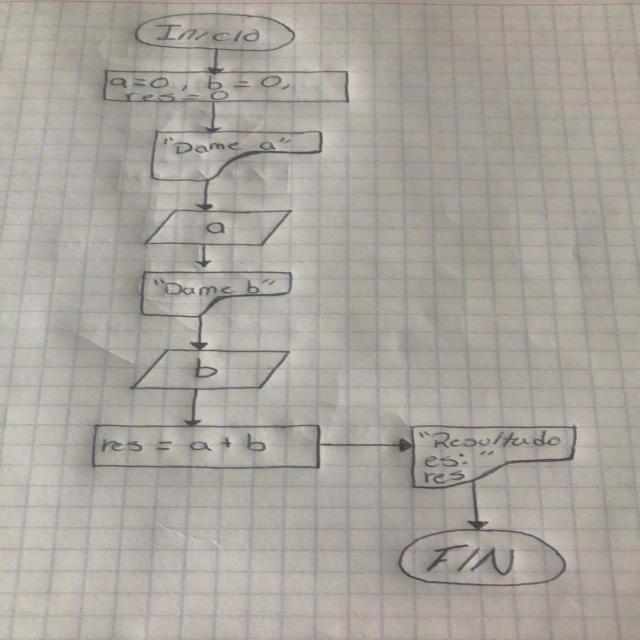 Inicio
a=0, b=0,
res=0
"Dame a"
a
"Dame b"
b
res = a + b
"Resultado
es:"
res
FIN